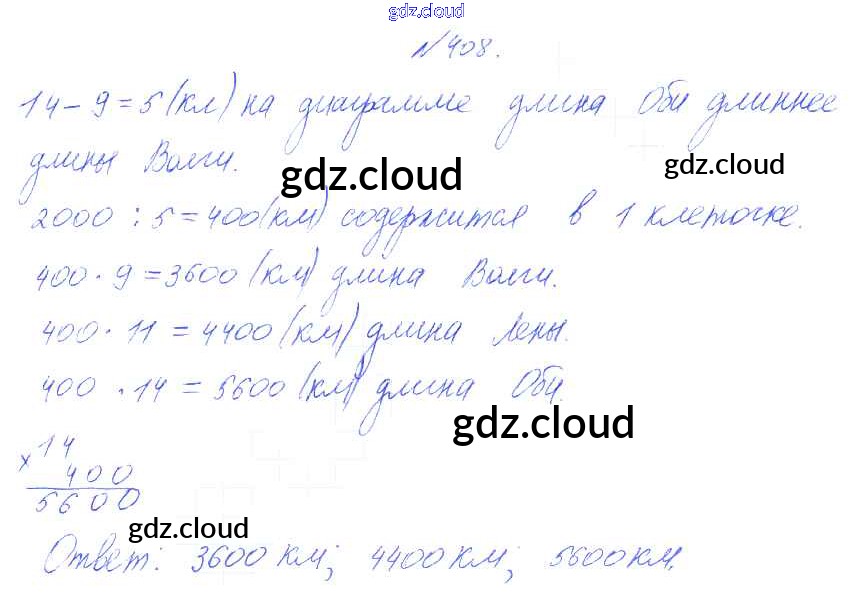 gdz.cloud
№408.
14 - 9 = 5 (км) на диаграмме длина Оби длиннее
длины Волги.
gdz.cloud
gdz.cloud
2000 : 5 = 400 (км) содержится в 1 клеточке.
400 · 9 = 3600 (км) длина Волги.
400 · 11 = 4400 (км) длина Лены.
400 · 14 = 5600 (км) длина Оби.
gdz.cloud
× 14
400
5600
gdz.cloud
Ответ: 3600 км; 4400 км; 5600 км.